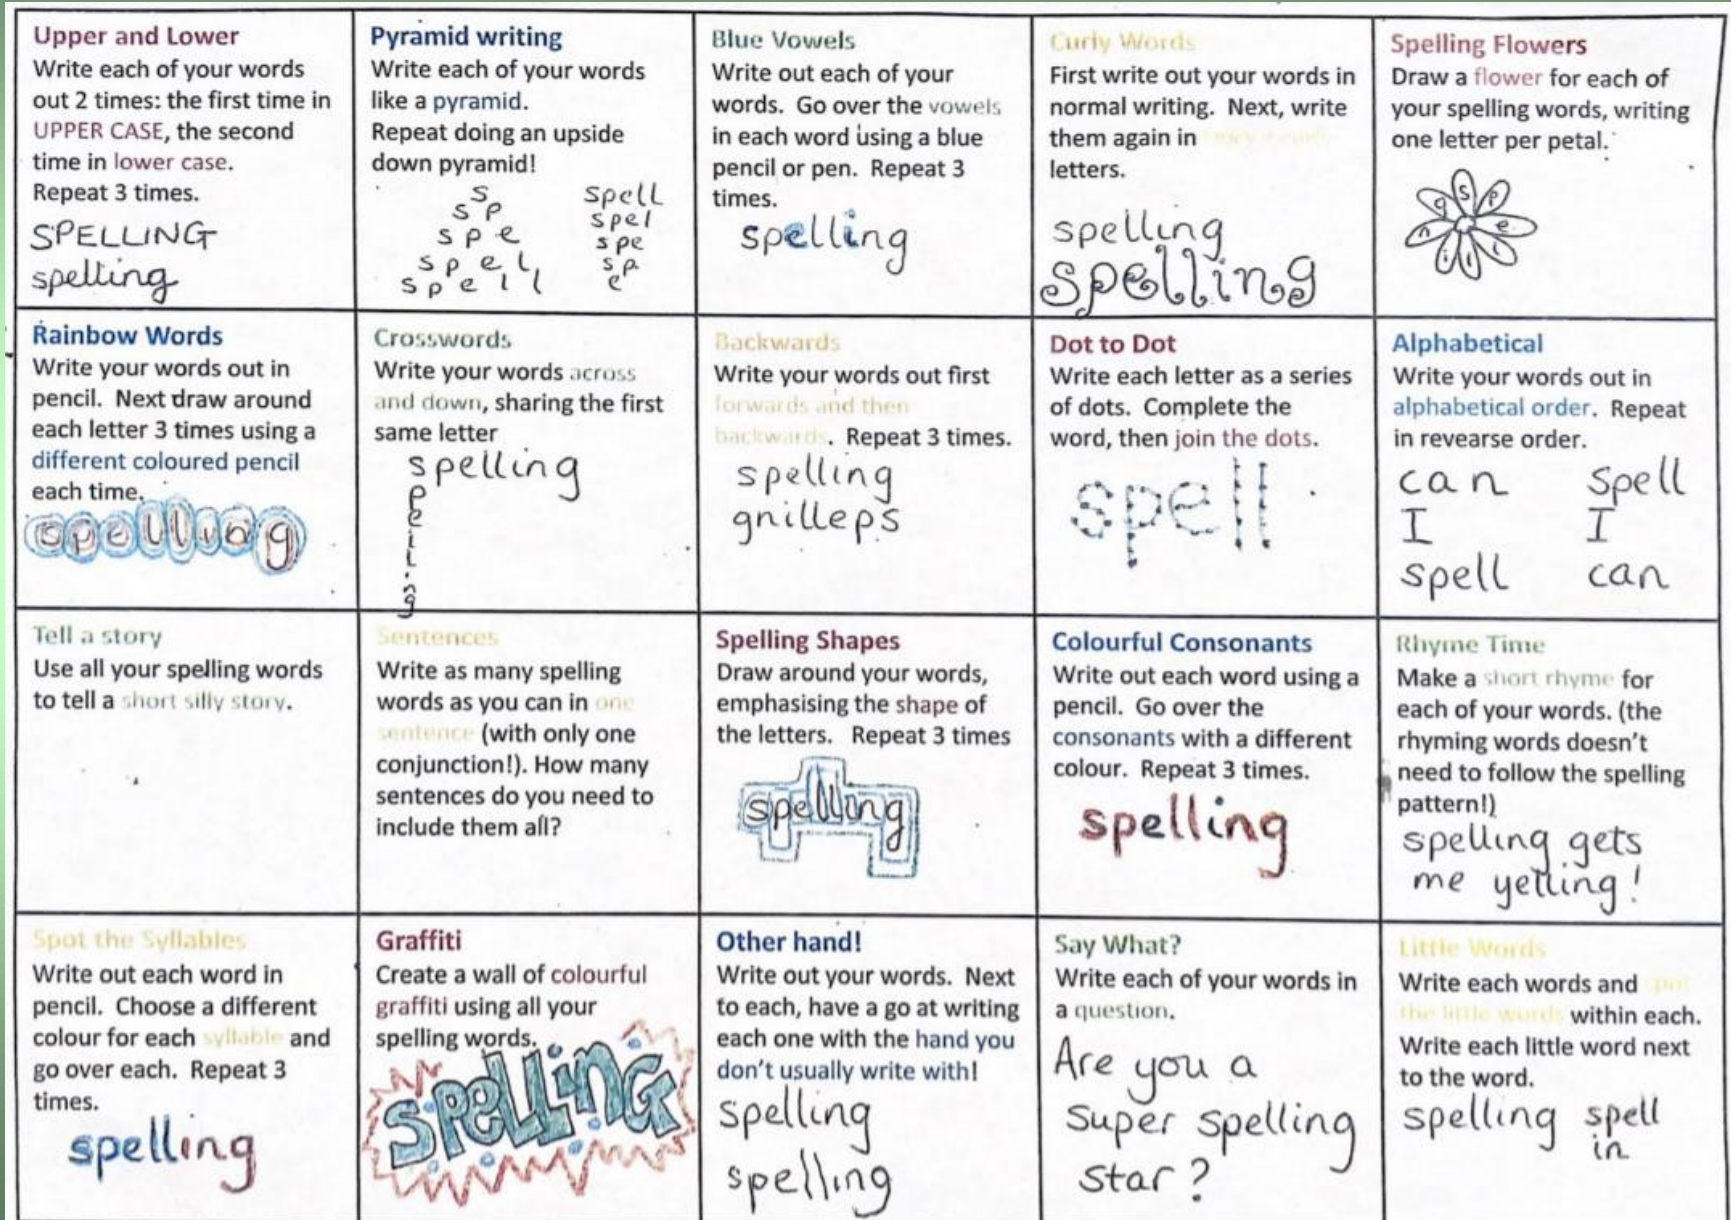 Upper and Lower
Write each of your words
out 2 times: the first time in
UPPER CASE, the second
time in lower case.
Repeat 3 times.
SPELLING
spelling
Pyramid writing
Write each of your words
like a pyramid.
Repeat doing an upside
down pyramid!
s
s p
s p e
s p e l
s p e l l
spell
spel
spe
sp
e
Blue Vowels
Write out each of your
words. Go over the vowels
in each word using a blue
pencil or pen. Repeat 3
times.
spelling
Curly Words
First write out your words in
normal writing. Next, write
them again in
letters.
spelling
spelling
Spelling Flowers
Draw a flower for each of
your spelling words, writing
one letter per petal.
s p e l l i n g
Rainbow Words
Write your words out in
pencil. Next draw around
each letter 3 times using a
different coloured pencil
each time.
spelling
Crosswords
Write your words across
and down, sharing the first
same letter
spelling
p
e
l
l
i
n
g
Backwards
Write your words out first
forwards and then
backwards. Repeat 3 times.
spelling
gnilleps
Dot to Dot
Write each letter as a series
of dots. Complete the
word, then join the dots.
spell
Alphabetical
Write your words out in
alphabetical order. Repeat
in revearse order.
can spell
I I
spell can
Tell a story
Use all your spelling words
to tell a short silly story.
Sentences
Write as many spelling
words as you can in one
sentence (with only one
conjunction!). How many
sentences do you need to
include them all?
Spelling Shapes
Draw around your words,
emphasising the shape of
the letters. Repeat 3 times
spelling
Colourful Consonants
Write out each word using a
pencil. Go over the
consonants with a different
colour. Repeat 3 times.
spelling
Rhyme Time
Make a short rhyme for
each of your words. (the
rhyming words doesn't
need to follow the spelling
pattern!)
spelling gets
me yelling!
Spot the Syllables
Write out each word in
pencil. Choose a different
colour for each syllable and
go over each. Repeat 3
times.
spelling
Graffiti
Create a wall of colourful
graffiti using all your
spelling words.
SPELLING
Other hand!
Write out your words. Next
to each, have a go at writing
each one with the hand you
don't usually write with!
spelling
spelling
Say What?
Write each of your words in
a question.
Are you a
super spelling
star?
Little Words
Write each words and spot
the little words within each.
Write each little word next
to the word.
spelling spell
in